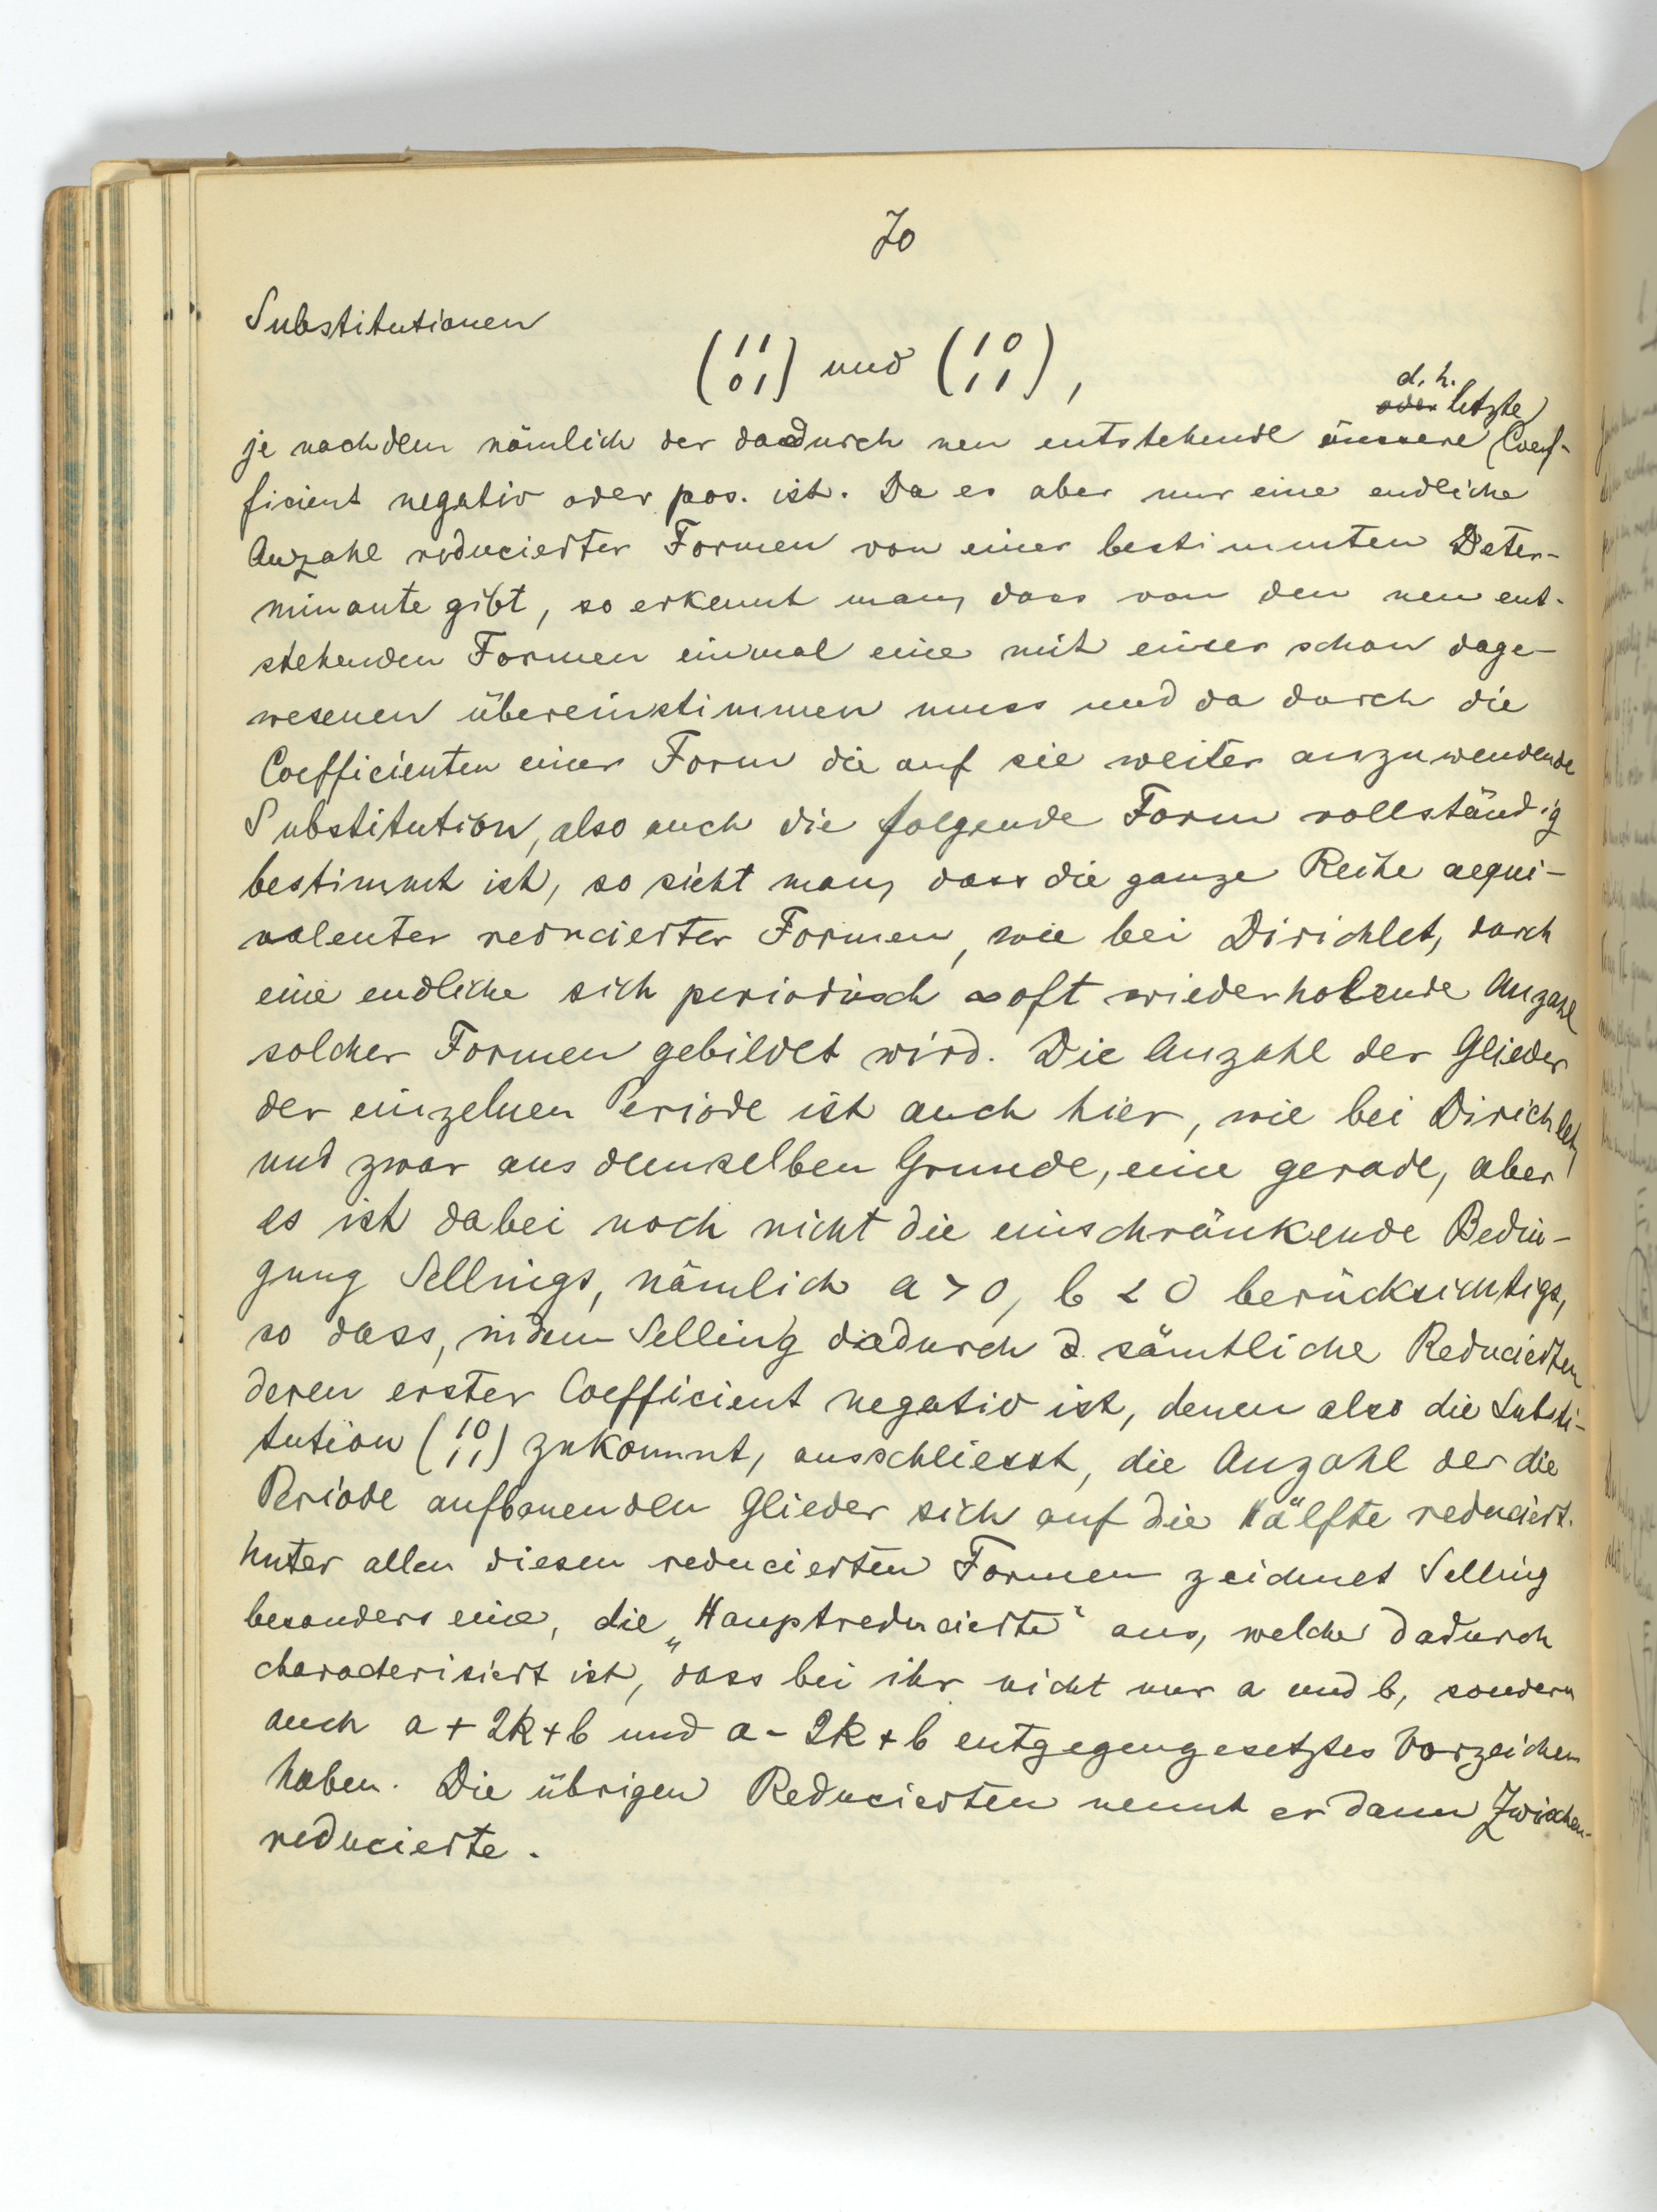 70
Substitutionen
(1 1
0 1) und (1 0
1 1),
d. h.
oder letzte
je nachdem nämlich der dadurch neu entstehende äussere Coef-
ficient negativ oder pos. ist. Da es aber nur eine endliche
Anzahl reducierter Formen von einer bestimmten Deter-
minante gibt, so erkennt man, dass von den neu ent-
stehenden Formen einmal eine mit einer schon dage-
wesenen übereinstimmen muss und da durch die
Coefficienten einer Form die auf sie weiter anzuwendende
Substitution, also auch die folgende Form vollständig
bestimmt ist, so sieht man, dass die ganze Reihe aequi-
valenter reducierter Formen, wie bei Dirichlet, durch
eine endliche sich periodisch ∞ oft wiederholende Anzahl
solcher Formen gebildet wird. Die Anzahl der Glieder
der einzelnen Periode ist auch hier, wie bei Dirichlet,
und zwar aus demselben Grunde, eine gerade, aber
es ist dabei noch nicht die einschränkende Bedin-
gung Sellings, nämlich a > 0, b < 0 berücksichtigt,
so dass, indem Selling dadurch d. sämtliche Reducierten
deren erster Coefficient negativ ist, denen also die Substi-
tution (1 0
1 1) zukommt, ausschliesst, die Anzahl der die
Periode aufbauenden Glieder sich auf die Hälfte reduciert.
Unter allen diesen reducierten Formen zeichnet Selling
besonders eine, die „Hauptreducierte“ aus, welche dadurch
characterisiert ist, dass bei ihr nicht nur a und b, sondern
auch a + 2k + b und a - 2k + b entgegengesetztes Vorzeichen
haben. Die übrigen Reducierten nennt er dann Zwischen-
reducierte.